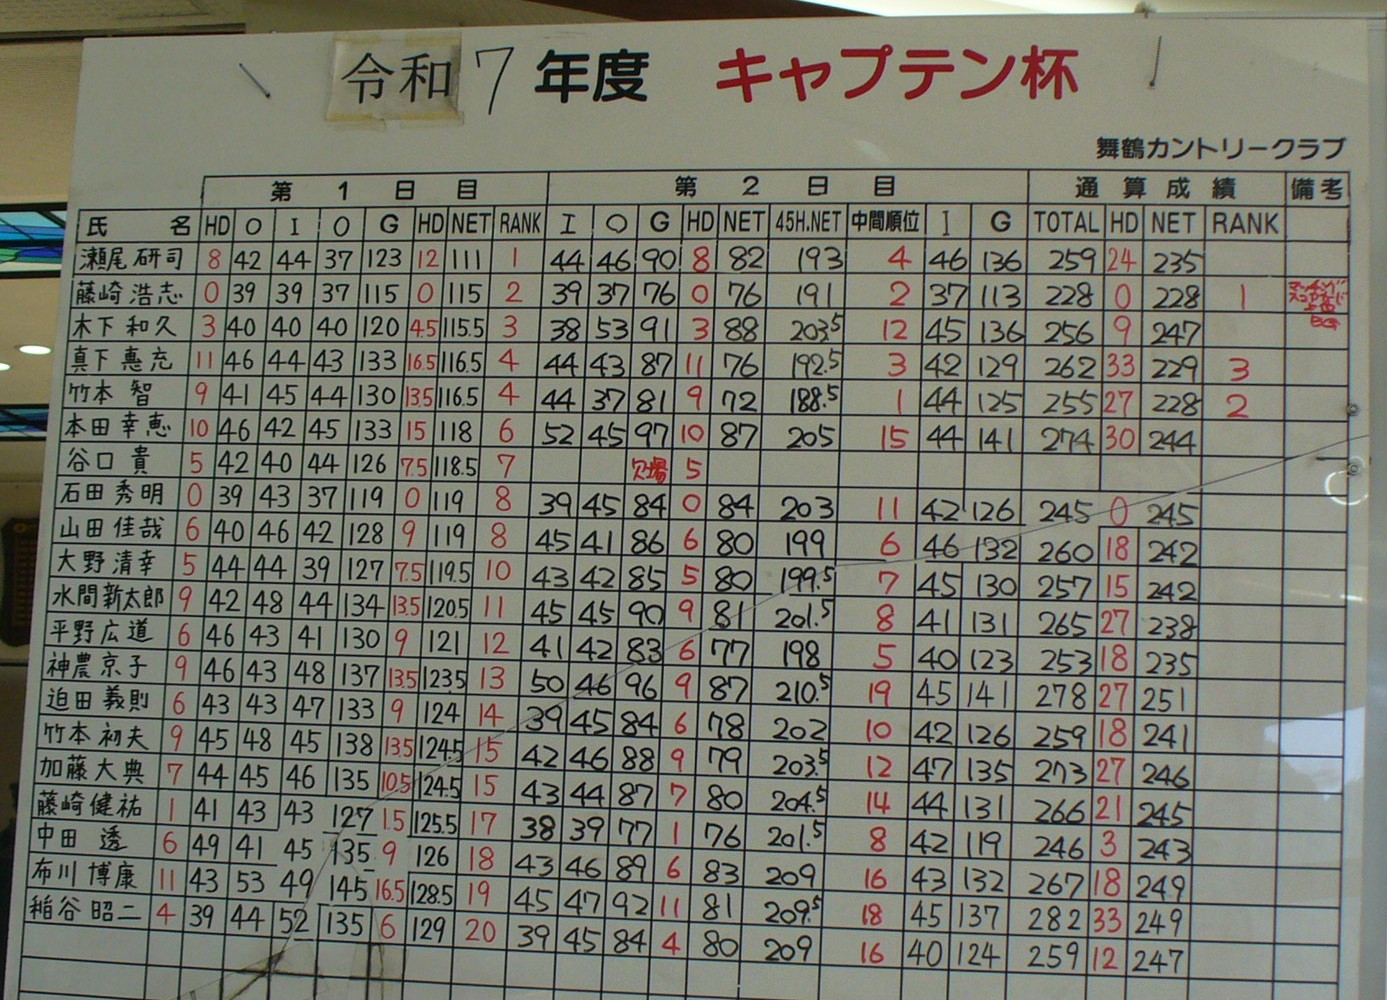 令和7年度 キャプテン杯
舞鶴カントリークラブ
第1日目 第2日目 通算成績 備考
氏名 HD O I O G HD NET RANK I O G HD NET 45H.NET 中間順位 I G TOTAL HD NET RANK
瀬尾研司 8 42 44 37 123 12 111 1 44 46 90 8 82 193 4 46 136 259 24 235
藤崎浩志 0 39 39 37 115 0 115 2 39 37 76 0 76 191 2 37 113 228 0 228 1
木下和久 3 40 40 40 120 4.5 115.5 3 38 53 91 3 88 203.5 12 45 136 256 9 247
真下惠充 11 46 44 43 133 16.5 116.5 4 44 43 87 11 76 192.5 3 42 129 262 33 229 3
竹本智 9 41 45 44 130 13.5 116.5 4 44 37 81 9 72 188.5 1 44 125 255 27 228 2
本田幸恵 10 46 42 45 133 15 118 6 52 45 97 10 87 205 15 44 141 274 30 244
谷口貴 5 42 40 44 126 7.5 118.5 7 欠場 5
石田秀明 0 39 43 37 119 0 119 8 39 45 84 0 84 203 11 42 126 245 0 245
山田佳哉 6 40 46 42 128 9 119 8 45 41 86 6 80 199 6 46 132 260 18 242
大野清幸 5 44 44 39 127 7.5 119.5 10 43 42 85 5 80 199.5 7 45 130 257 15 242
水間新太郎 9 42 48 44 134 13.5 120.5 11 45 45 90 9 81 201.5 8 41 131 265 27 238
平野広道 6 46 43 41 130 9 121 12 41 42 83 6 77 198 5 40 123 253 18 235
神農京子 9 46 43 48 137 13.5 123.5 13 50 46 96 9 87 210.5 19 45 141 278 27 251
迫田義則 6 43 43 47 133 9 124 14 39 45 84 6 78 202 10 42 126 259 18 241
竹本初夫 9 45 48 45 138 13.5 124.5 15 42 46 88 9 79 203.5 12 47 135 273 27 246
加藤大典 7 44 45 46 135 10.5 124.5 15 43 44 87 7 80 204.5 14 44 131 266 21 245
藤崎健祐 1 41 43 43 127 1.5 125.5 17 38 39 77 1 76 201.5 8 42 119 246 3 243
中田透 6 49 41 45 135 9 126 18 43 46 89 6 83 209 16 43 132 267 18 249
布川博康 11 43 53 49 145 16.5 128.5 19 45 47 92 11 81 209.5 18 45 137 282 33 249
稲谷昭二 4 39 44 52 135 6 129 20 39 45 84 4 80 209 16 40 124 259 12 247